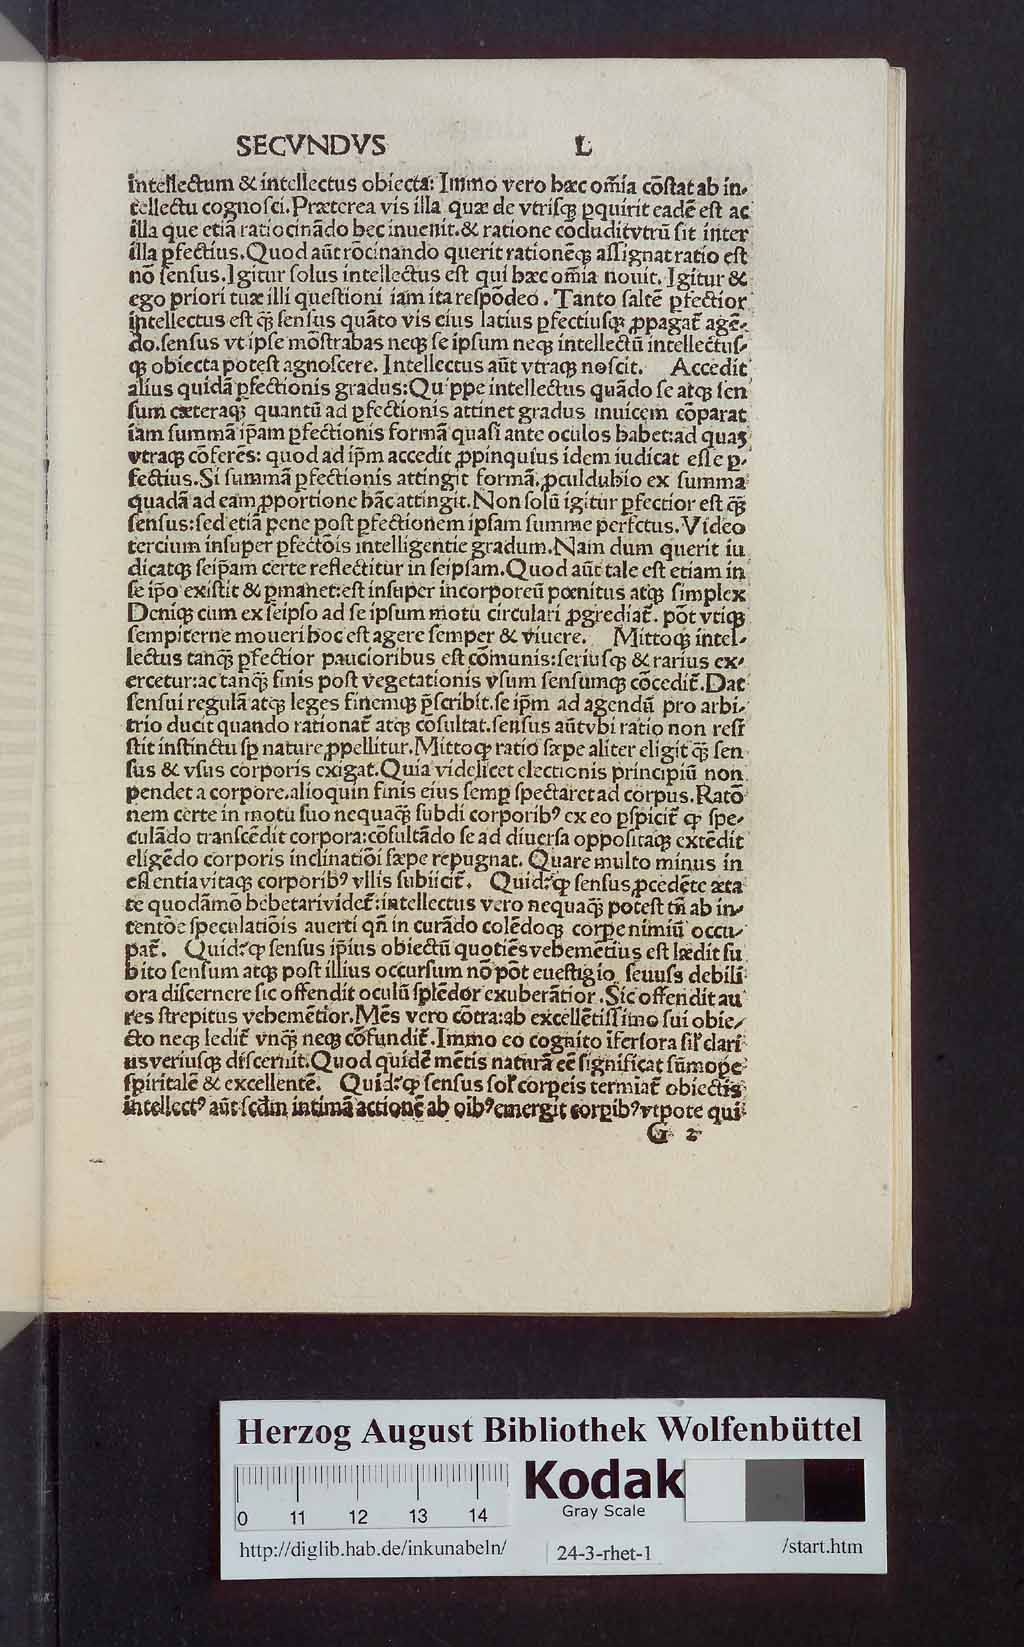 SECVNDVS L
intellectum & intellectus obiecta: Immo vero hæc om̄ia cōstat ab in-
tellectu cognosci. Præterea vis illa quæ de vtrisqꝫ ꝑquirit eadē est ac
illa que etiā ratiocinādo hec inuenit. & ratione cōcludit vtrū sit inter
illa ꝑfectius. Quod aūt rōcinando querit rationēqꝫ assignat ratio est
nō sensus. Igitur solus intellectus est qui hæc om̄ia nouit. Igitur &
ego priori tuæ illi questioni iam ita respōdeo. Tanto saltē ꝑfectior
intellectus est qꝫ̄ sensus quāto vis eius latius ꝑfectiusqꝫ ꝓpagat̄ agē-
do. sensus vt ipse mōstrabas neqꝫ se ipsum neqꝫ intellectū intellectus-
qꝫ obiecta potest agnoscere. Intellectus aūt vtraqꝫ noscit. Accedit
alius quidā ꝑfectionis gradus: Quippe intellectus quādo se atqꝫ sen
sum cæteraqꝫ quantū ad ꝑfectionis attinet gradus inuicem cōparat
iam summā ip̄am ꝑfectionis formā quasi ante oculos habet: ad quaꝫ
vtraqꝫ cōferēs: quod ad ip̄m accedit ꝓpinquius idem iudicat esse ꝑ-
fectius. Si summā ꝑfectionis attingit formā, ꝓculdubio ex summa
quadā ad eam ꝓportione hāc attingit. Non solū igitur ꝑfectior est qꝫ̄
sensus: sed etiā pene post ꝑfectionem ipsam summe perfctus. Video
tercium insuper ꝑfectōis intelligentie gradum. Nam dum querit iu
dicatqꝫ seip̄am certe reflectitur in seipsam. Quod aūt tale est etiam in
se ip̄o existit & ꝑmanet: est insuper incorporeū pœnitus atqꝫ simplex
Deniqꝫ cum ex seipso ad se ipsum motu circulari ꝓgrediat̄. pōt vtiqꝫ
sempiterne moueri hoc est agere semper & viuere. Mittoqꝫ intel-
lectus tanqꝫ̄ ꝑfectior paucioribus est cōmunis: seriusqꝫ & rarius ex-
ercetur: ac tanqꝫ̄ finis post vegetationis vsum sensumqꝫ cōcedit̄. Dat
sensui regulā atqꝫ leges finemqꝫ p̄scribit. se ip̄m ad agendū pro arbi-
trio ducit quando rationat̄ atqꝫ cōsultat. sensus aūt vbi ratio non resi
stit instinctu sꝑ nature ꝓpellitur. Mittoqꝫ ratio sæpe aliter eligit qꝫ̄ sen
sus & vsus corporis exigat. Quia videlicet electionis principiū non
pendet a corpore. alioquin finis eius semꝑ spectaret ad corpus. Ratō
nem certe in motu suo nequaqꝫ̄ subdi corporibꝰ ex eo ꝑspicit̄ ꝙ spe-
culādo transcēdit corpora: cōsultādo se ad diuersa oppositaqꝫ extēdit
eligēdo corporis inclinatiōi sæpe repugnat. Quare multo minus in
essentia vitaqꝫ corporibꝰ vllis subiicit̄. Quid? ꝙ sensus ꝓcedēte æta
te quodāmō hebetari videt̄: intellectus vero nequaqꝫ̄ potest tn̄ ab in-
tentōe speculatiōis auerti qn̄ in curādo colēdoqꝫ corꝑe nimiū occu-
pat̄. Quid? ꝙ sensus ip̄ius obiectū quotiēs vehemētius est lædit su
bito sensum atqꝫ post illius occursum nō pōt euestigio seuuss debili
ora discernere sic offendit oculū splēdor exuberātior. Sic offendit au
res strepitus vehemētior. Mēs vero cōtra: ab excellētissimo sui obie-
cto neqꝫ ledit̄ vnqꝫ̄ neqꝫ cōfundit̄. Immo eo cognito īferiora sil̄ clari
us veriusqꝫ discernit. Quod quidē mētis naturā eē significat sūmope
spiritalē & excellentē. Quid? ꝙ sensus sol̄ corꝑeis termīat̄ obiectis
intellectꝰ aūt scd̄m intimā actionē ab oībꝰ emergit corꝑibꝰ vtpote qui
G 2
Herzog August Bibliothek Wolfenbüttel
0 11 12 13 14
Kodak
Gray Scale
http://diglib.hab.de/inkunabeln/ 24-3-rhet-1 /start.htm